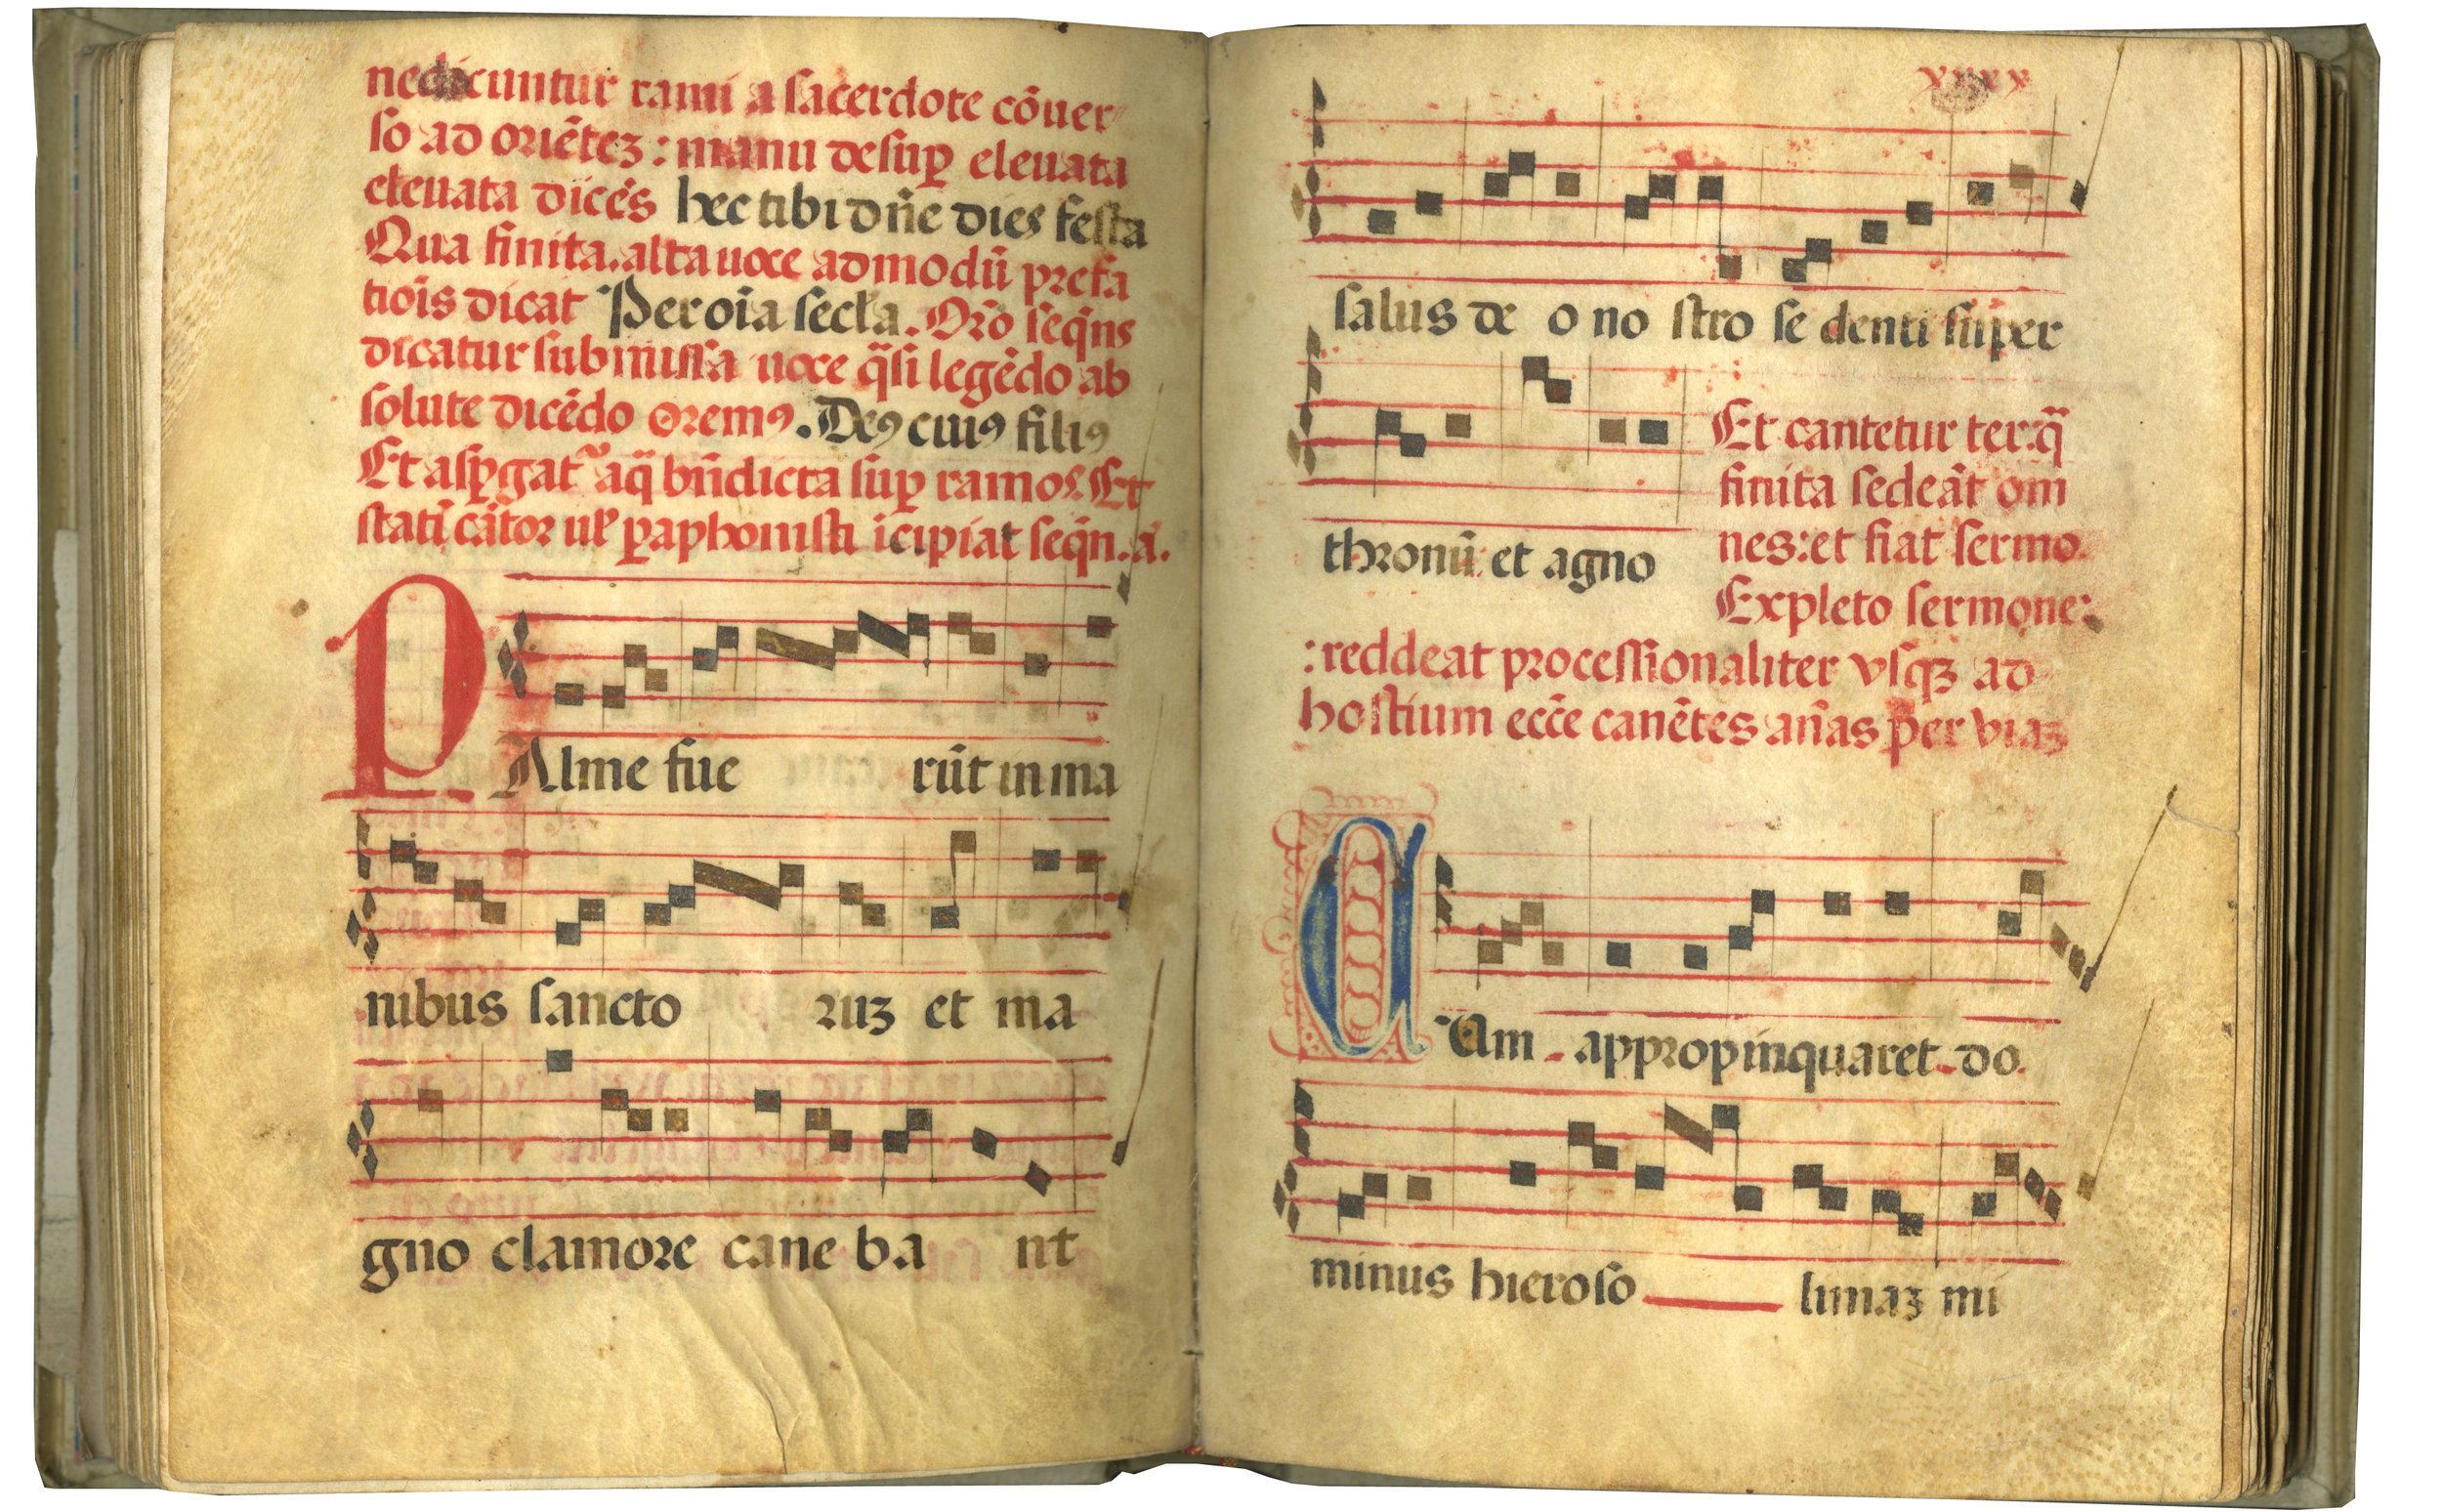 nedicuntur rami a sacerdote cōuer
so ad oriētez : manu desuꝑ eleuata
eleuata dicēs hec tibi dn̄e dies festa
Qua finita. alta uoce ad modū prefa
tiōis dicat Per oīa secl̄a. Orō seq̄ns
dicatur submissa uoce q̄si legēdo ab
solute dicēdo oremꝯ. Deꝯ cuiꝯ filiꝯ
Et asꝑgat aq̄ bn̄dicta suꝑ ramos. Et
statī cātor ul̄ ꝑaphonisti īcipiat seq̄n. a.
PAlme fue rūt in ma
nibus sancto ruz et ma
gno clamore cane ba nt
xxxx
salus de o no stro se denti super
thronū et agno
Et cantetur ter: q̄
finita sedeāt om
nes: et fiat sermo.
Expleto sermone:
: reddeat processionaliter vsqz ad
hostium ecc̄e canētes an̄as per viaz
CUm appropinquaret do.
minus hieroso limaz mi